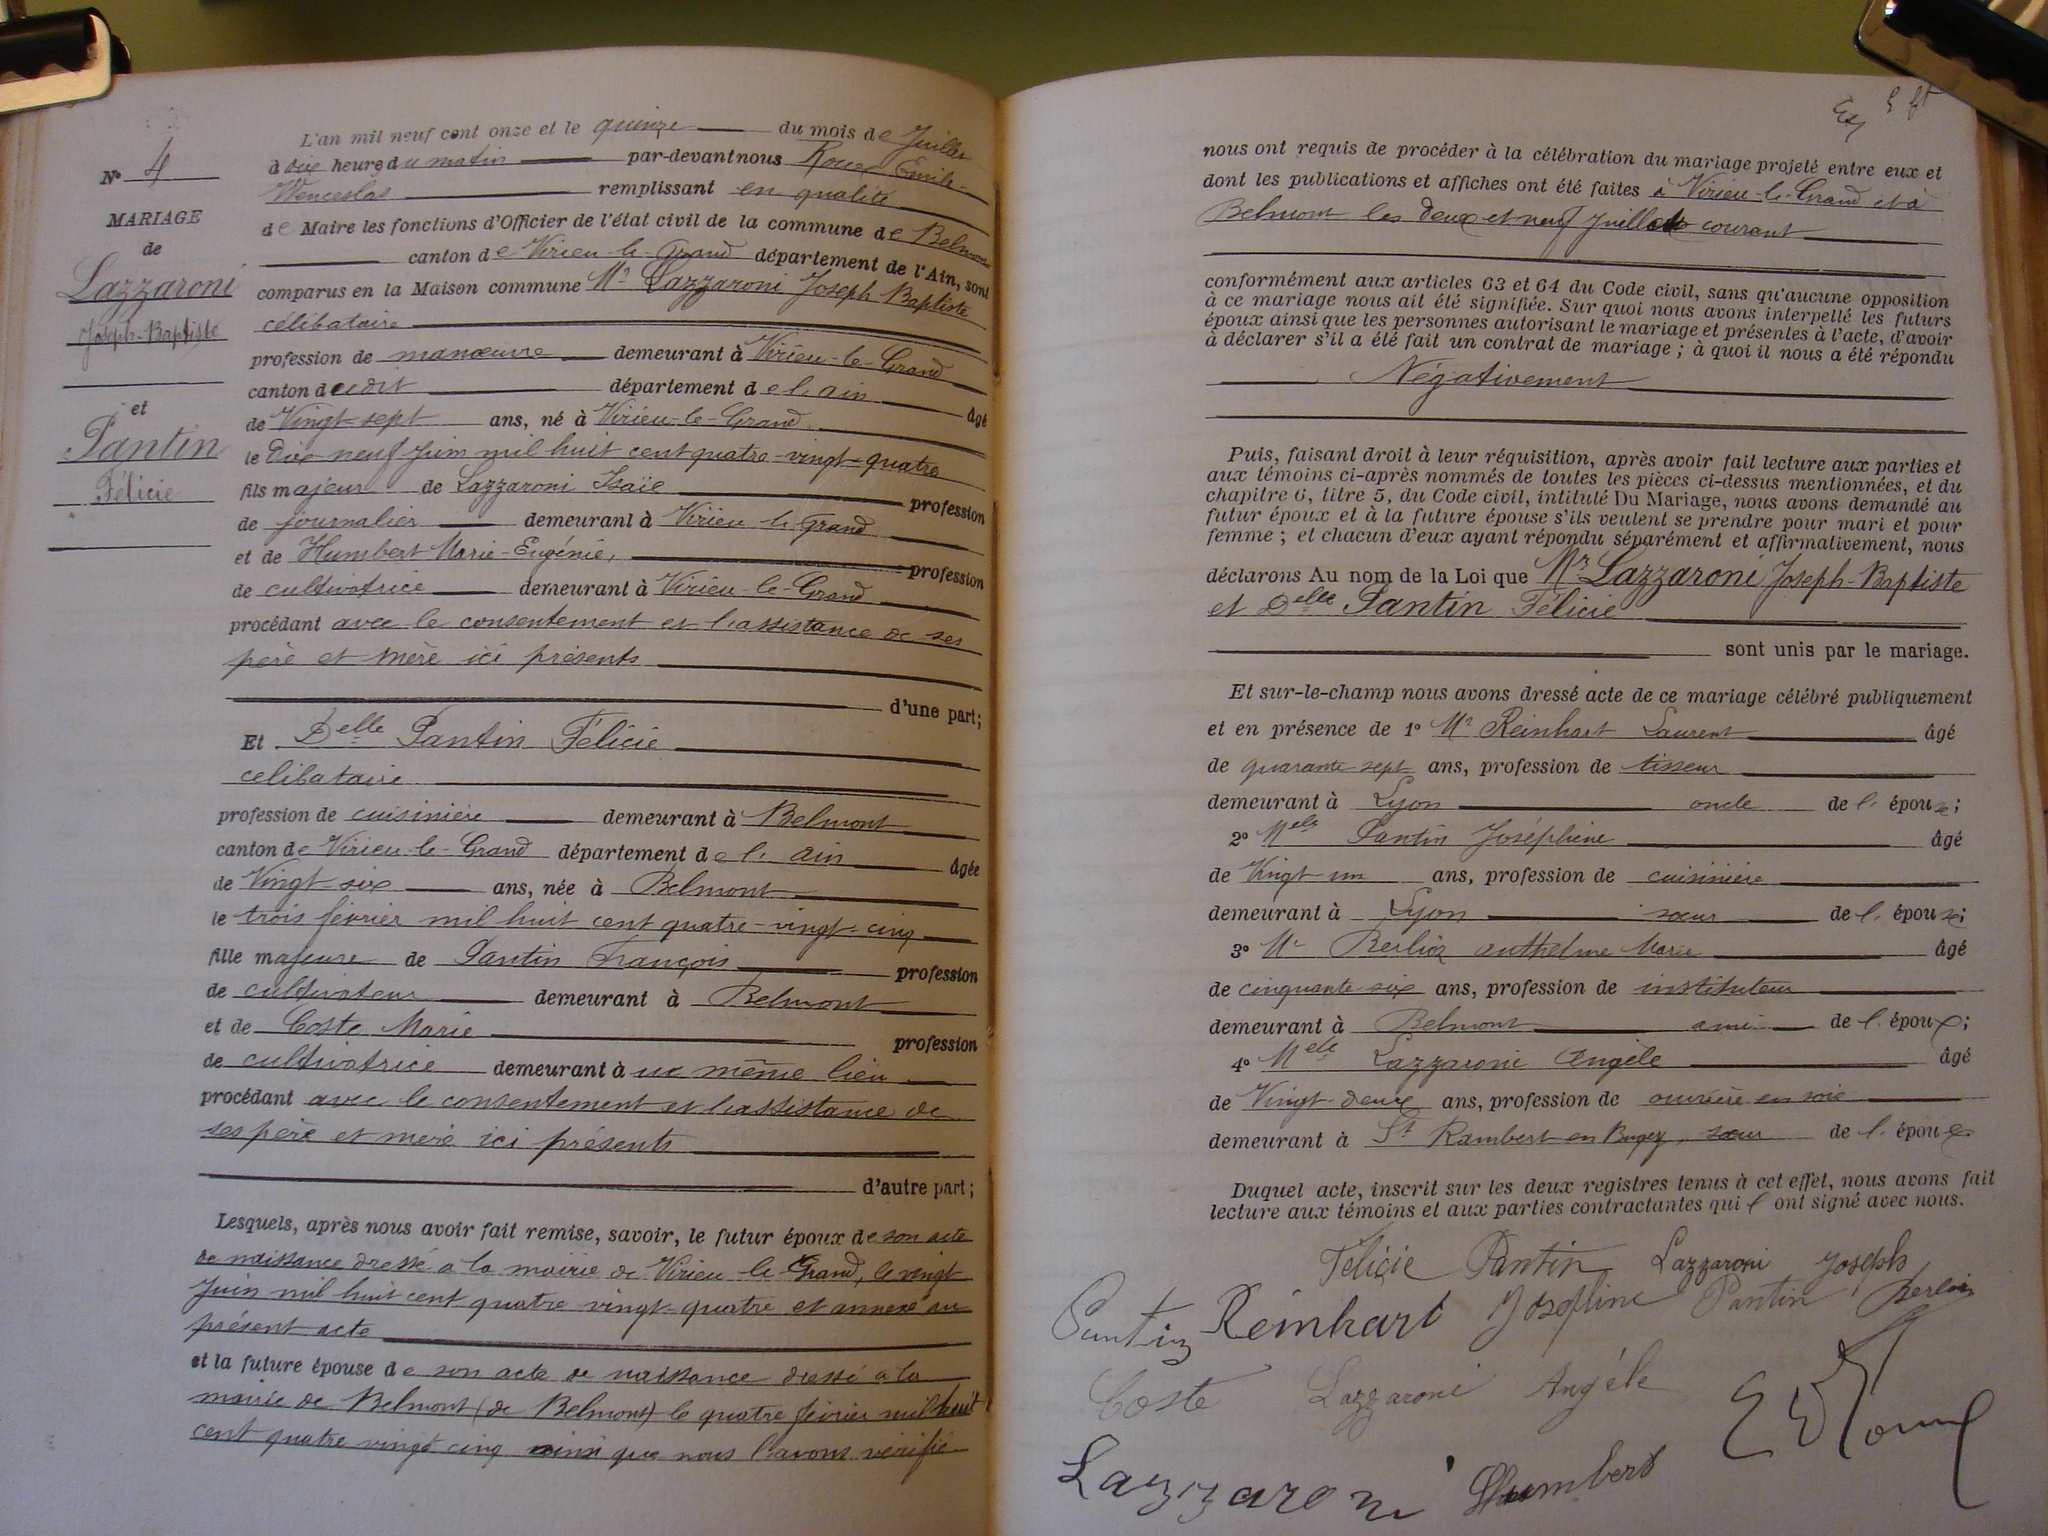 N° 4
MARIAGE
de
Lazzaroni
Joseph-Baptiste
et
Pantin
Félicie
L'an mil neuf cent onze et le quinze du mois de Juillet
à dix heures du matin par-devant nous Roux Emile
Wenceslas remplissant en qualité
de Maire les fonctions d'Officier de l'état civil de la commune de Belmont
canton de Virieu-le-Grand département de l'Ain, sont
comparus en la Maison commune Mr Lazzaroni Joseph-Baptiste
célibataire
profession de manœuvre demeurant à Virieu-le-Grand
canton dudit département de l'ain âgé
de Vingt-sept ans, né à Virieu-le-Grand
le Dix neuf Juin mil huit cent quatre-vingt-quatre
fils majeur de Lazzaroni Isaïe profession
de journalier demeurant à Virieu-le-Grand
et de Humbert Marie-Eugénie, profession
de cultivatrice demeurant à Virieu-le-Grand
procédant avec le consentement et l'assistance de ses
père et mère ici présents
d'une part;
Et Delle Pantin Félicie
célibataire
profession de cuisinière demeurant à Belmont
canton de Virieu-le-Grand département de l'ain âgée
de Vingt six ans, née à Belmont
le trois février mil huit cent quatre-vingt-cinq
fille majeure de Pantin François profession
de cultivateur demeurant à Belmont
et de Coste Marie profession
de cultivatrice demeurant à même lieu
procédant avec le consentement et l'assistance de
ses père et mère ici présents
d'autre part;
Lesquels, après nous avoir fait remise, savoir, le futur époux de son acte
de naissance dressé à la mairie de Virieu-le-Grand, le vingt
Juin mil huit cent quatre vingt-quatre et annexé au
présent acte
et la future épouse de son acte de naissance dressé à la
mairie de Belmont (de Belmont) le quatre février mil huit
cent quatre vingt cinq ainsi que nous l'avons vérifié
nous ont requis de procéder à la célébration du mariage projeté entre eux et
dont les publications et affiches ont été faites à Virieu-le-Grand et à
Belmont les deux et neuf Juillet courant
conformément aux articles 63 et 64 du Code civil, sans qu'aucune opposition
à ce mariage nous ait été signifiée. Sur quoi nous avons interpellé les futurs
époux ainsi que les personnes autorisant le mariage et présentes à l'acte, d'avoir
à déclarer s'il a été fait un contrat de mariage; à quoi il nous a été répondu
Négativement
Puis, faisant droit à leur réquisition, après avoir fait lecture aux parties et
aux témoins ci-après nommés de toutes les pièces ci-dessus mentionnées, et du
chapitre 6, titre 5, du Code civil, intitulé Du Mariage, nous avons demandé au
futur époux et à la future épouse s'ils veulent se prendre pour mari et pour
femme; et chacun d'eux ayant répondu séparément et affirmativement, nous
déclarons Au nom de la Loi que Mr Lazzaroni Joseph-Baptiste
et Delle Pantin Félicie
sont unis par le mariage.
Et sur-le-champ nous avons dressé acte de ce mariage célébré publiquement
et en présence de 1° Mr Reinhart Laurent âgé
de quarante-sept ans, profession de tisseur
demeurant à Lyon oncle de l'épouse;
2° Melle Pantin Joséphine âgé
de Vingt-un ans, profession de cuisinière
demeurant à Lyon sœur de l'épouse;
3° Mr Berlioz anthelme Marie âgé
de cinquante six ans, profession de instituteur
demeurant à Belmont ami de l'époux;
4° Melle Lazzaroni Angèle âgé
de Vingt-deux ans, profession de ouvrière en soie
demeurant à St Rambert en Bugey, sœur de l'époux
Duquel acte, inscrit sur les deux registres tenus à cet effet, nous avons fait
lecture aux témoins et aux parties contractantes qui l'ont signé avec nous.
Félicie Pantin Lazzaroni Joseph
Pantin Reinhart Joséphine Pantin Berlioz
Coste Lazzaroni Angèle
Lazzaroni Humbert